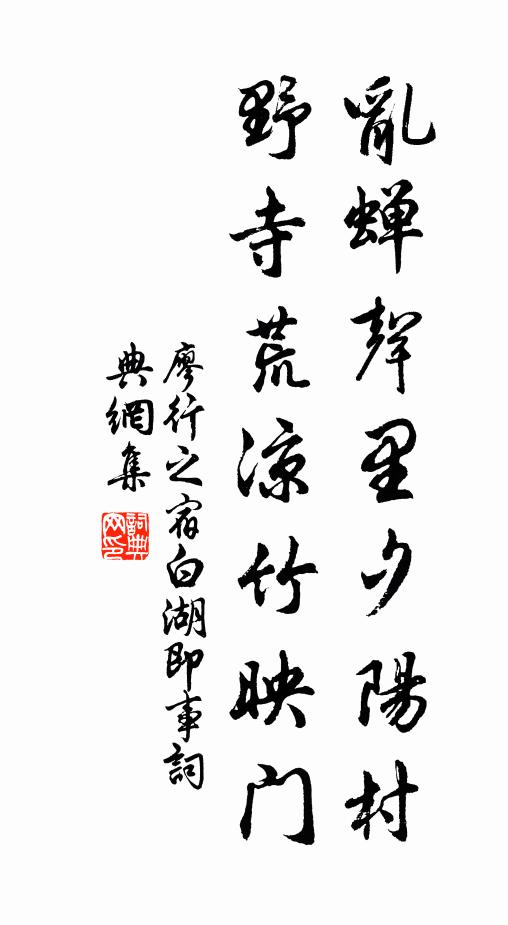 亂蟬聲里夕陽村
野寺荒凉竹映門
廖行之宿白湖即事詞
典網集
詞典
网印